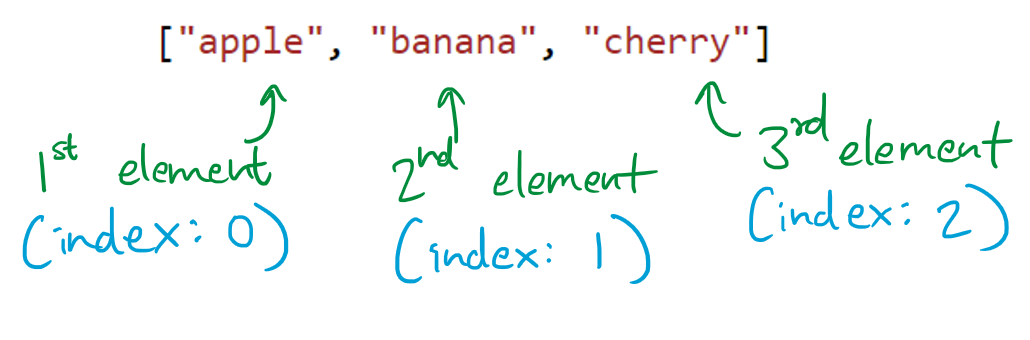 ["apple", "banana", "cherry"]
1st element
(index: 0)
2nd element
(index: 1)
3rd element
(index: 2)